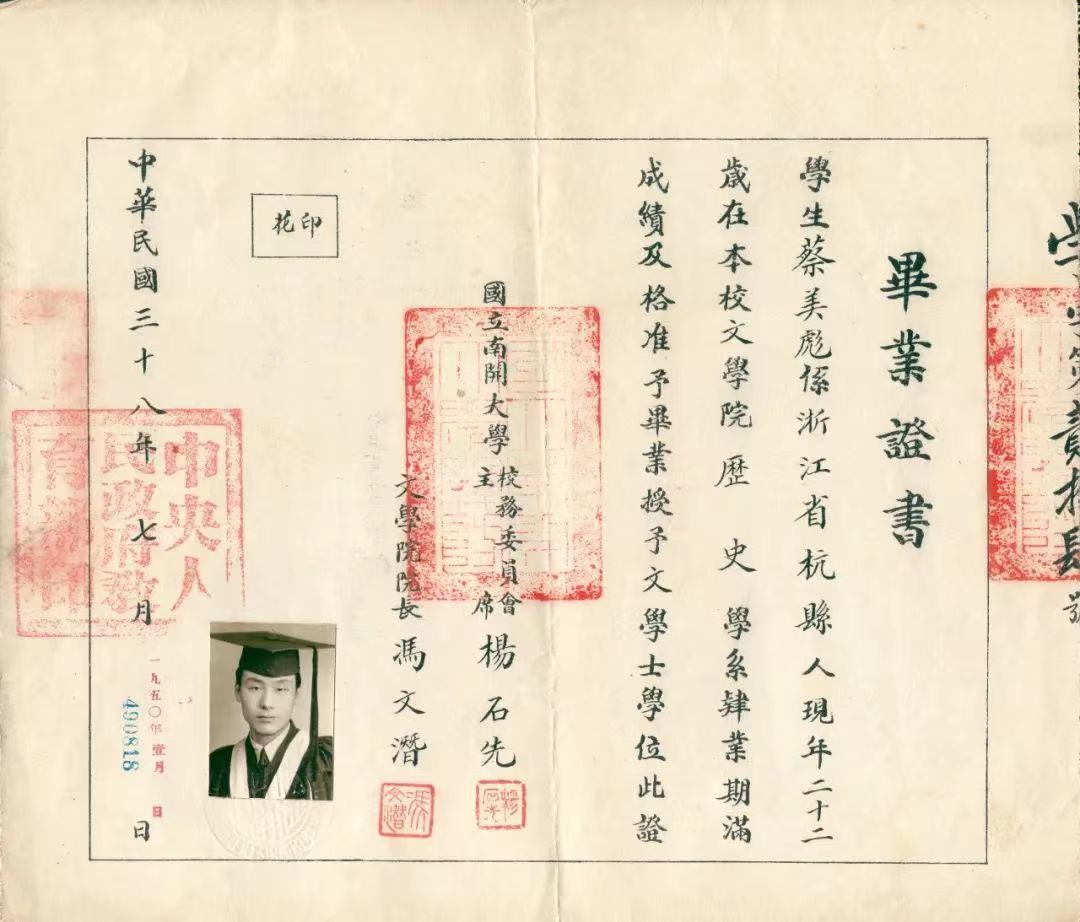 畢業證書
學生蔡美彪係浙江省杭縣人現年二十二
歲在本校文學院歷史學系肄業期滿
成績及格准予畢業授予文學士學位此證
國立南開大學校務委員會主席楊石先
文學院院長馮文潛
印花
中華民國三十八年七月日
中央人
民政府教
育部印
一九五〇年壹月日
490818
楊石先
馮文潛